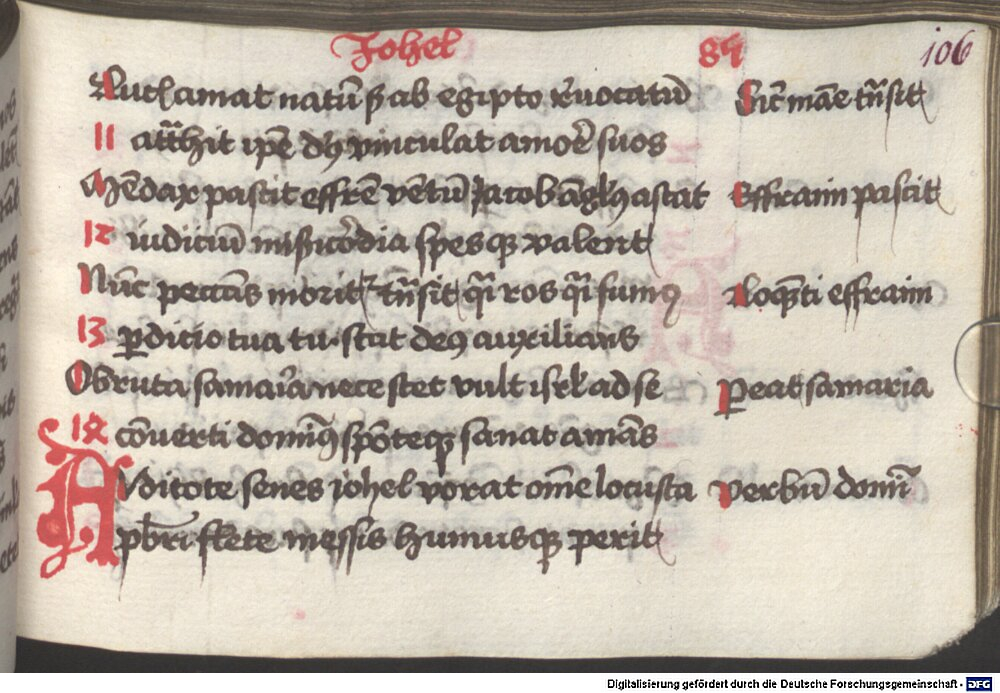 Johel 89 106
Auth amat natū ꝓ ab egipto r̄uocatū Sic̄ māe tn̄sit
11 att̄hit ip̄e dꝰ vinculat amor̄e suos
Mēdax pascit effrē vētū Jacob āglꝰ astat Effraim pascit
12 iudiciū mi̅sc̄ordia spesqꝫ valent
Nūc peccās morit᷑ tn̄sit q̄i ros q̄i fumꝰ Loq̄nti effraim
13 ꝑdicio tua tu stat deꝰ auxilians
Obruta samar̄ia nece stet vult isrl̄ ad se Pereat samaria
14 cōuerti dominꝰ spōteqꝫ sanat amās
Auditote senes johel vorat om̄e locusta Verbū domī
p̄bri flete messis humusqꝫ perit
Digitalisierung gefördert durch die Deutsche Forschungsgemeinschaft - DFG